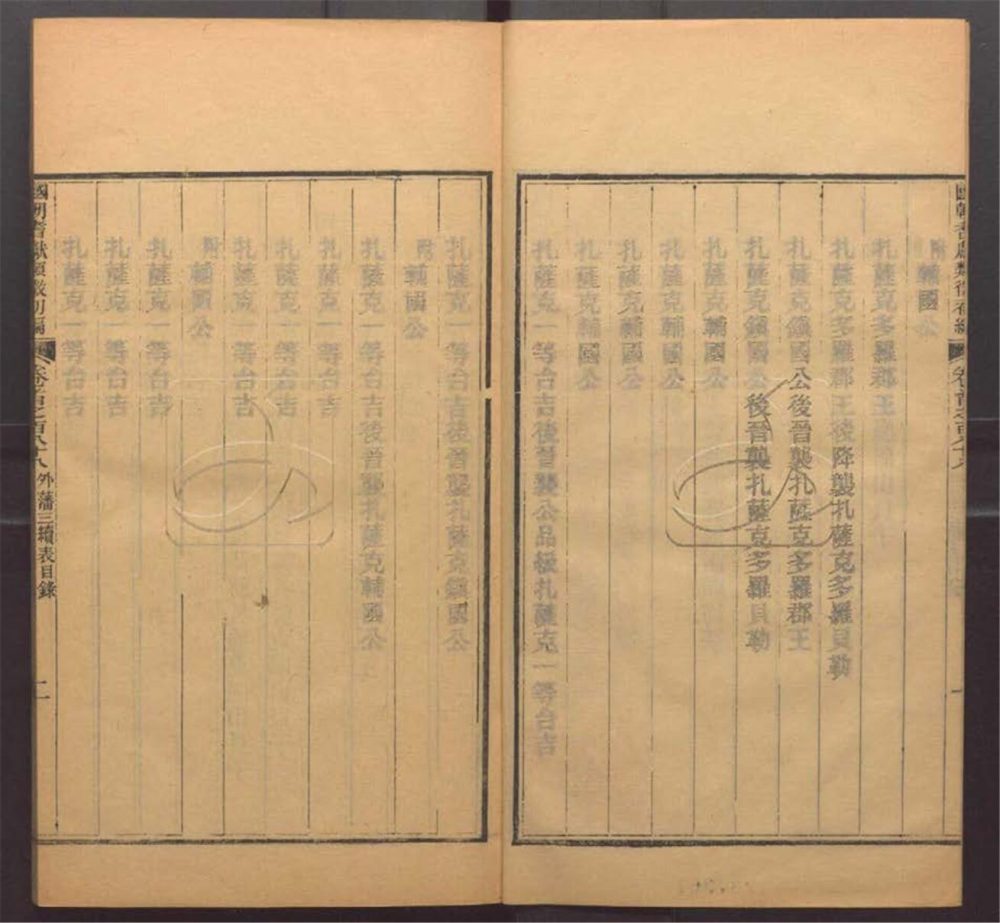 附輔國公
札薩克多羅郡王
札薩克多羅郡王後降襲札薩克多羅貝勒
札薩克鎮國公後晉襲札薩克多羅郡王
札薩克鎮國公後晉襲札薩克多羅貝勒
札薩克輔國公
札薩克輔國公
札薩克輔國公
札薩克輔國公
札薩克一等台吉後晉襲公品級札薩克一等台吉
札薩克一等台吉後晉襲札薩克鎮國公
附輔國公
札薩克一等台吉後晉襲札薩克輔國公
札薩克一等台吉
札薩克一等台吉
札薩克一等台吉
附輔國公
札薩克一等台吉
札薩克一等台吉
札薩克一等台吉
國朝耆獻類徵初編 卷首之百八十八 外藩三續表目錄 二